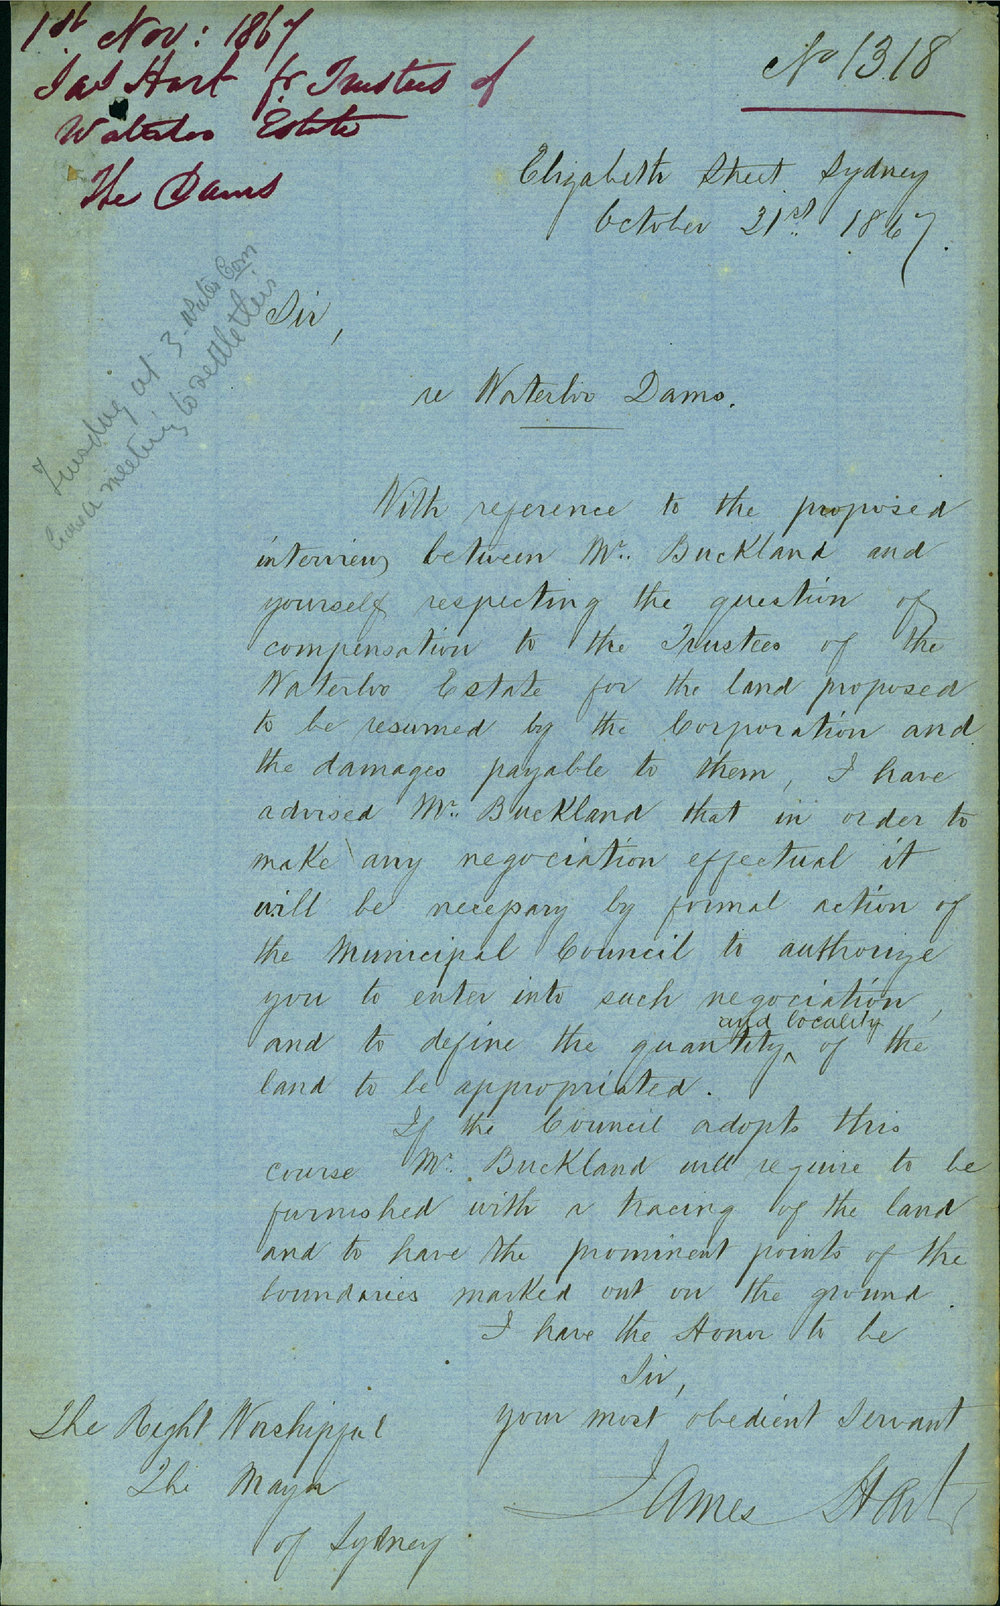 1st Nov: 1867
Jas Hart fr Trustees of
Waterloo Estate
The Dams
No 1318
Elizabeth Street Sydney
October 31st 1867.
Tuesday at 3 - Water Com
meeting to settle this
Sir,
re Waterloo Dams.
With reference to the proposed
interview between Mr. Buckland and
yourself respecting the question of
compensation to the Trustees of the
Waterloo Estate for the land proposed
to be resumed by the Corporation and
the damages payable to them, I have
advised Mr. Buckland that in order to
make any negociation effectual it
will be necessary by formal action of
the Municipal Council to authorize
you to enter into such negociation,
and to define the quantity and locality of the
land to be appropriated.
If the Council adopts this
course Mr. Buckland will require to be
furnished with a tracing of the land
and to have the prominent points of the
boundaries marked out on the ground.
I have the Honor to be
Sir,
your most obedient Servant
James Hart
The Right Worshipful
The Mayor
of Sydney